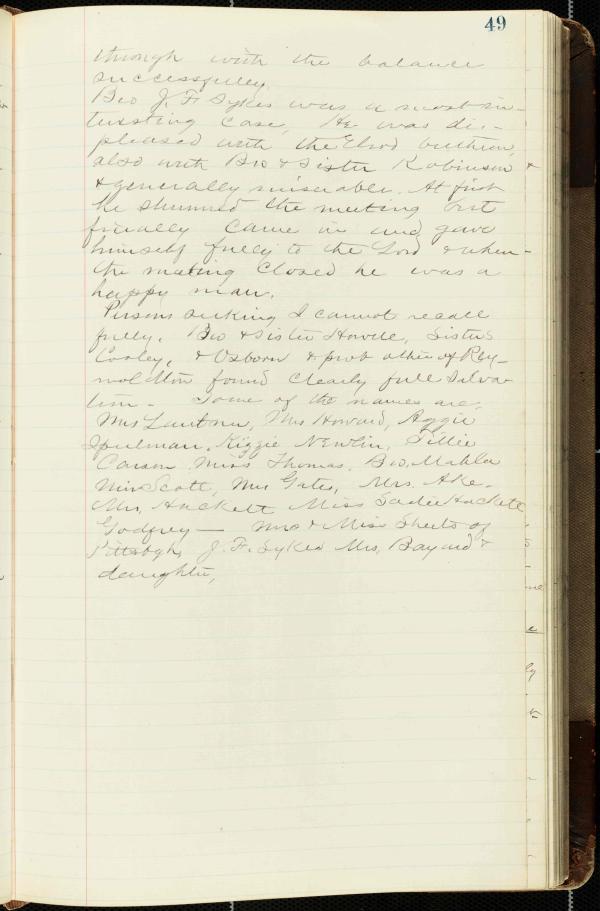 49
through with the balance
successfully.
Bro J. F. Sykes was a most in-
tersting case, He was dis-
pleased with the Elrod brethren,
also with Bro & Sister Robinson &
& generally miserable. At first
he shunned the meeting but
finally came in and gave
himself fully to the Lord & when
the meeting closed he was a
happy man.
Persons seeking I cannot recall
fully. Bro & Sister Howde, Sisters
Cooley, & Osborn & prob others of Rey-
noldton found clearly full salva-
tion - Some of the names are,
Mrs Lautner, Mrs Howard, Aggie
Spulman, Kizzie Newlin, Tillie
Carson Miss Thomas, Bro. Mahla
Miss Scott, Mrs Gates, Mrs. Ake.
Mrs. Hackett Miss Sadie Hackett
Godfrey — Mrs & Miss Sheets of
Pittsbgh, J. F. Sykes Mrs. Bayard &
daughter,